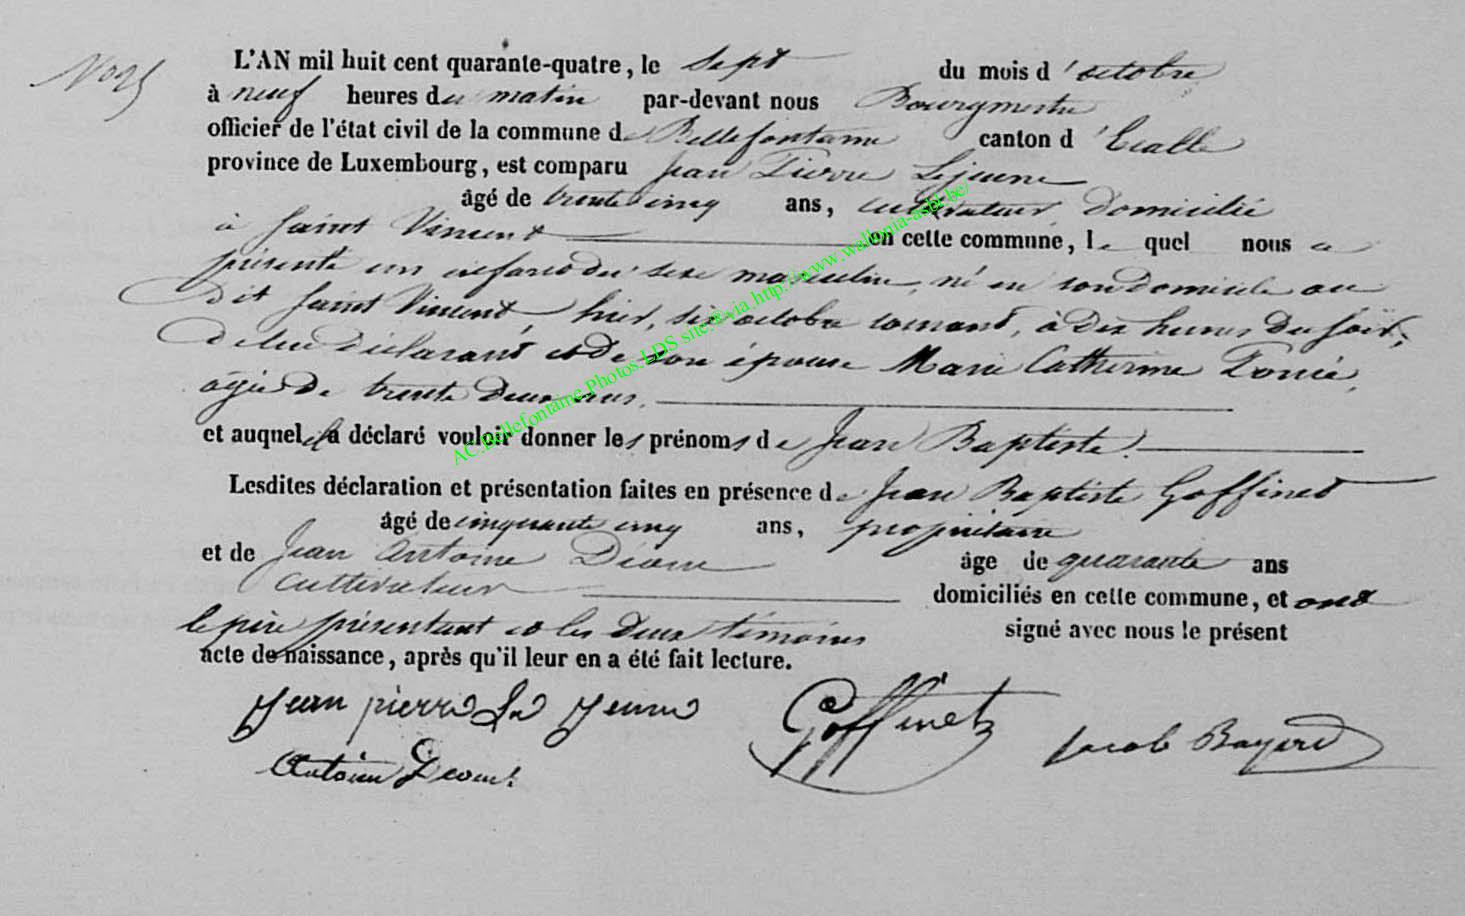 L'AN mil huit cent quarante-quatre, le sept du mois d'octobre
à neuf heures du matin par-devant nous Bourgmestre
officier de l'état civil de la commune de Bellefontaine canton d'Etalle
province de Luxembourg, est comparu Jean Pierre Lejeune
âgé de trente cinq ans, cultivateur, domicilié
à Saint Vincent en cette commune, lequel nous a
présenté un enfant du sexe masculin, né en son domicile au
dit Saint Vincent, hier, six octobre courant, à dix heures du soir,
de lui déclarant, et de son épouse Marie Catherine
âgée de trente deux ans,
et auquel il a déclaré vouloir donner les prénoms de Jean Baptiste.
Lesdites déclaration et présentation faites en présence de Jean Baptiste Goffinet
âgé de cinquante cinq ans, propriétaire
et de Jean Antoine Déom âge de quarante ans
cultivateur domiciliés en cette commune, et ont
le père présentant et les deux témoins signé avec nous le présent
acte de naissance, après qu'il leur en a été fait lecture.
Jean pierre Le Jeune Goffinet Jacob Bayard
Antoine Deom
AC.Bellefontaine.Photos.LDS site via http://www.wallonia-asbl.be/